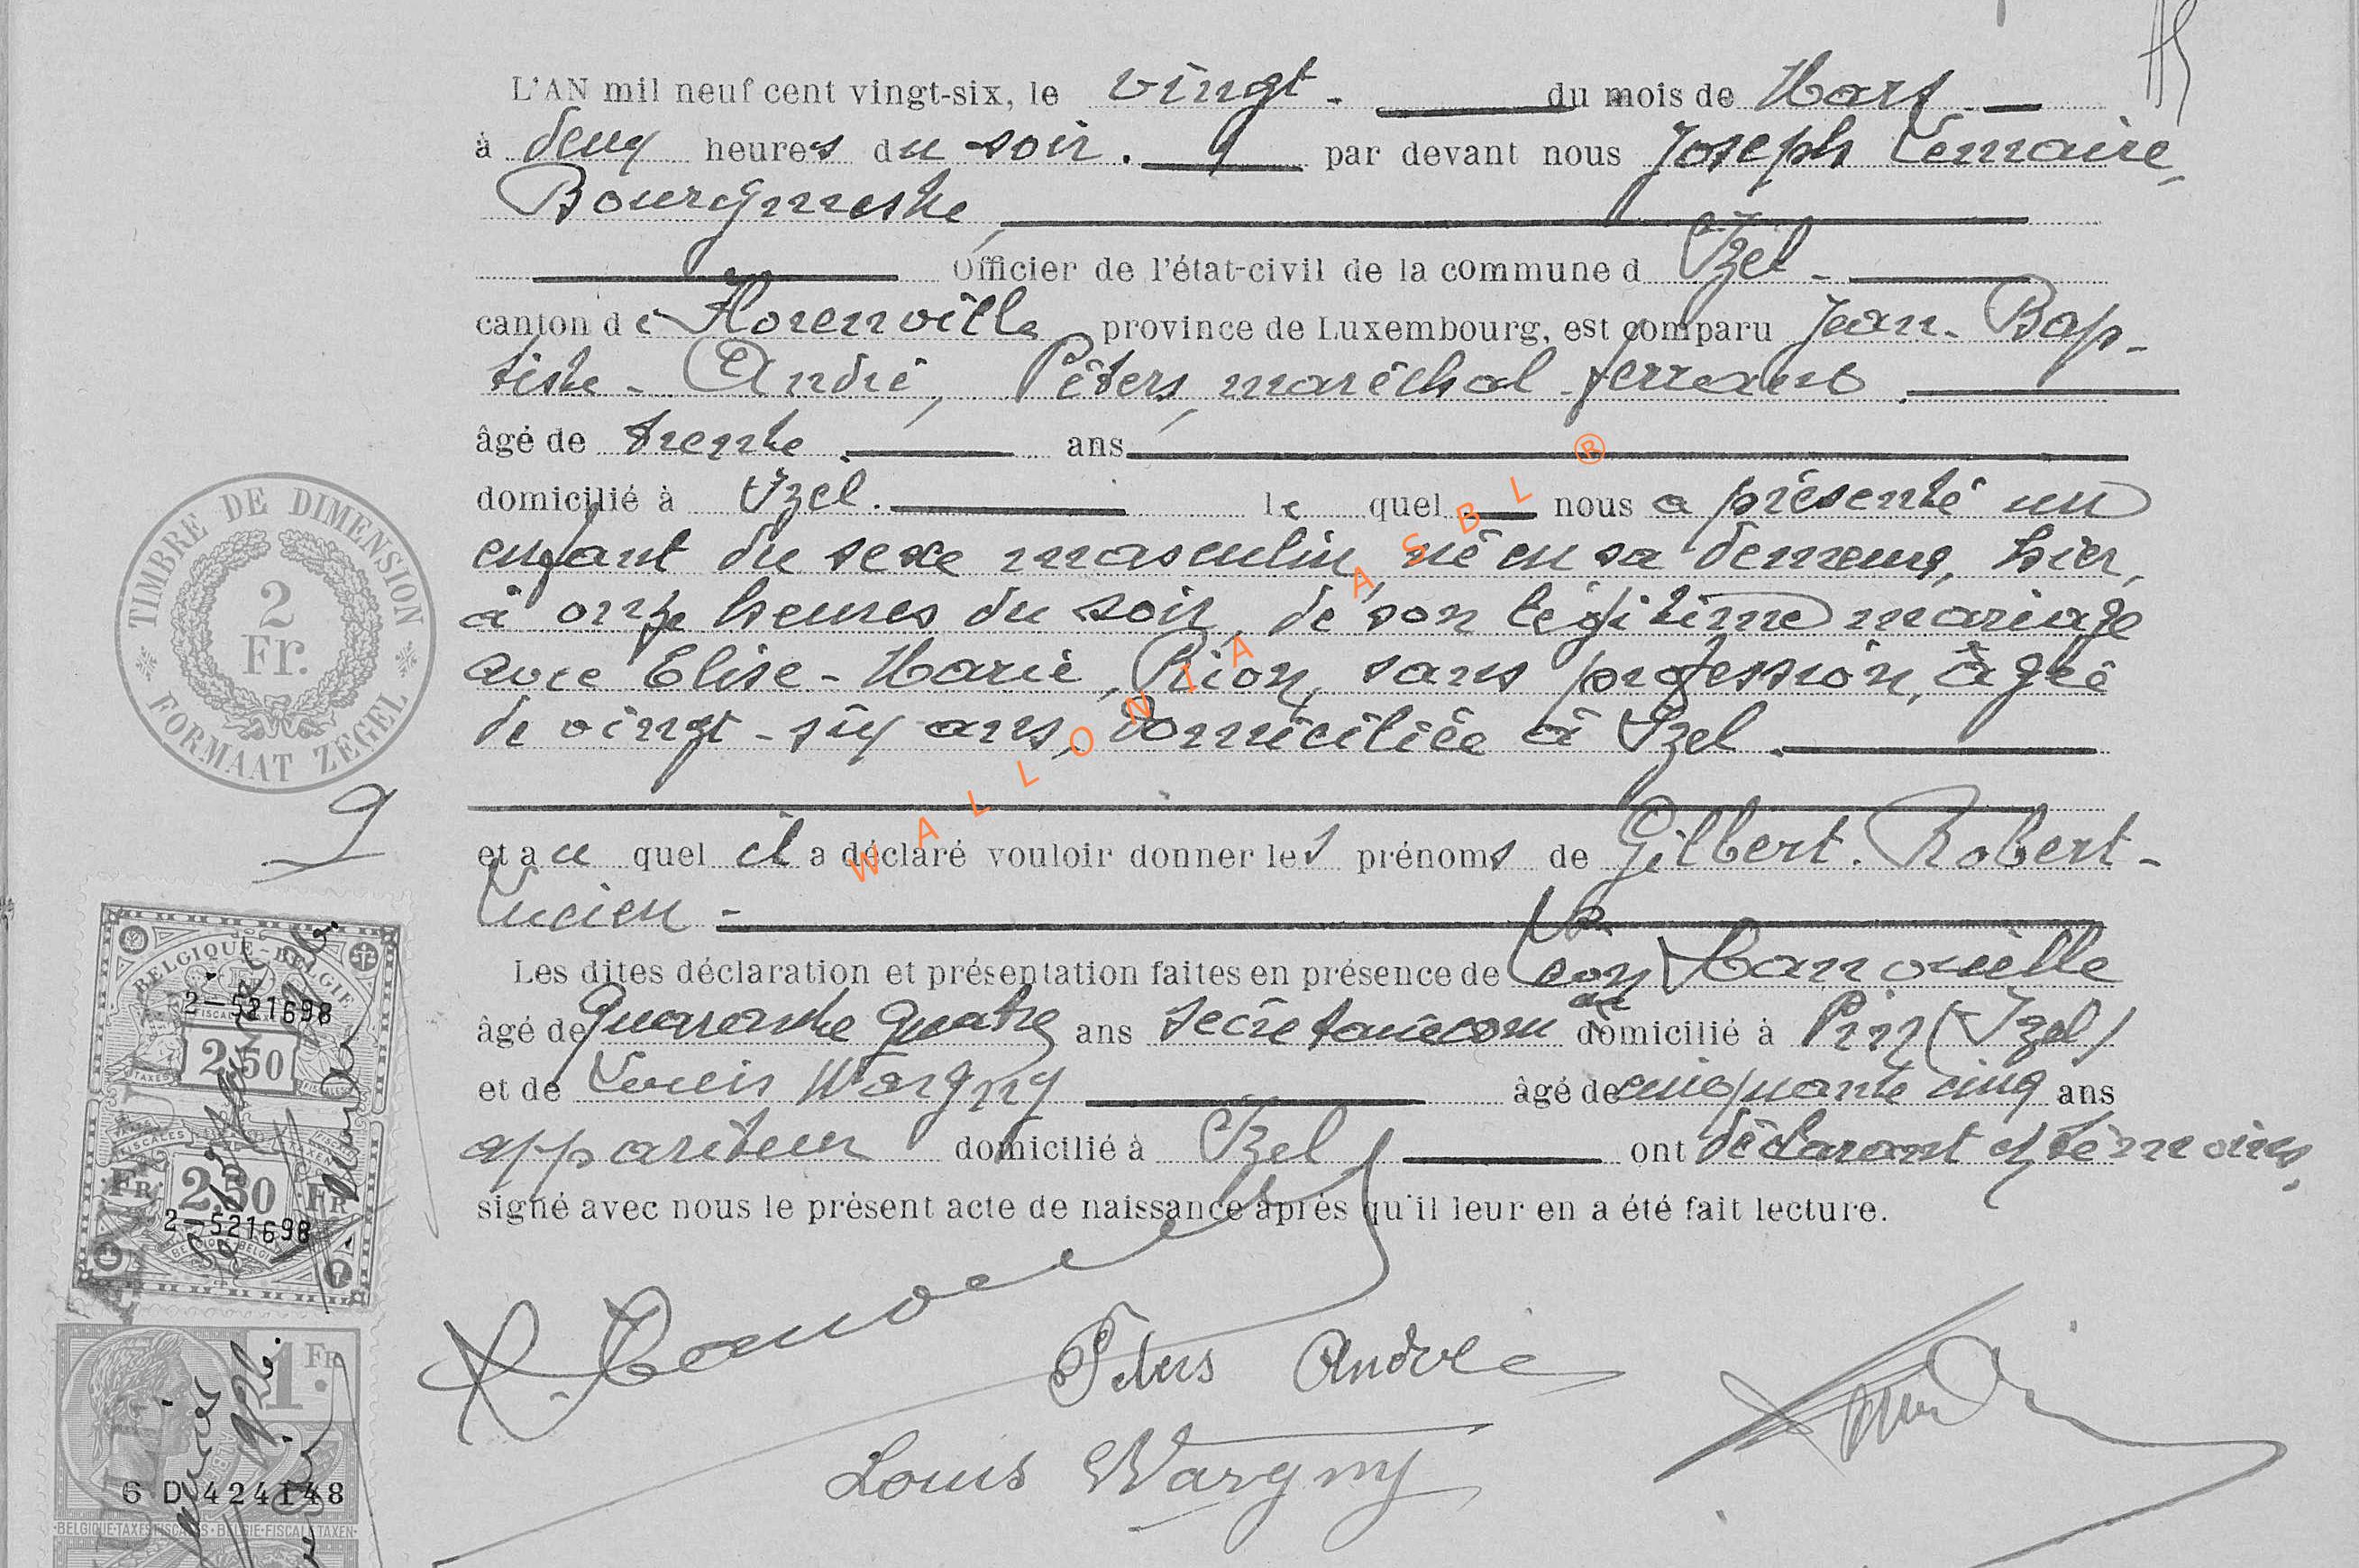 L'AN mil neuf cent vingt-six, le vingt. du mois de Mars
à deux heures du soir. par devant nous Joseph Lemaire,
Bourgmestre,
Officier de l'état-civil de la commune d Izel
canton de Florenville province de Luxembourg, est comparu Jean-Bap-
tiste-André, Péters, maréchal-ferrant.
âgé de trente. ans
domicilié à Izel. lequel nous a présenté un
enfant du sexe masculin, né en sa demeure, hier,
à onze heures du soir, de son légitime mariage
avec Elise-Marie, Rion, sans profession, âgée
de vingt-six ans, domiciliée à Izel.
9
et auquel il a déclaré vouloir donner les prénoms de Gilbert-Robert-
Lucien-
Les dites déclaration et présentation faites en présence de Léon
âgé de Quarante quatre ans secrétaire com domicilié à Pin (Izel)
et de Louis Wargny âgé de cinquante cinq ans
appariteur domicilié à Izel ont déclarant et témoins,
signé avec nous le présent acte de naissance après qu'il leur en a été fait lecture.
Peters André
Louis Wargny
TIMBRE DE DIMENSION
2
Fr.
FORMAAT ZEGEL
BELGIQUE-BELGIE
2-521698
2.50
FR 2.50 FR
2-521698
1 FR.
6 D 424148
BELGIQUE-TAXES FISCALES-BELGIE-FISCALE TAXEN
WALLONIA ASBL ®